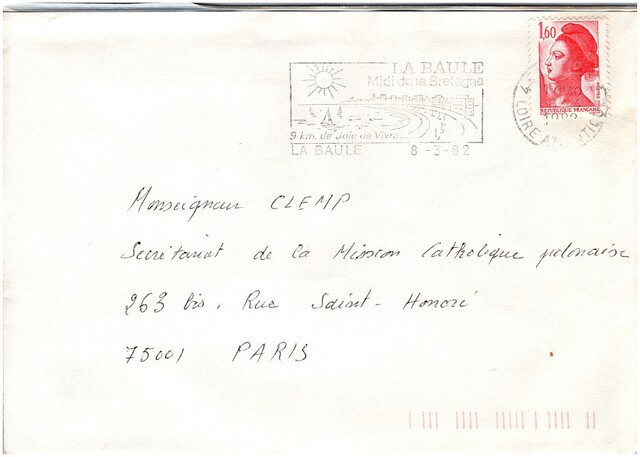 1,60
REPUBLIQUE FRANÇAISE
LA BAULE
Midi de la Bretagne
9 km. de Joie de Vivre...
LA BAULE 8-3-82
LOIRE ATLANTIQUE
Monseigneur CLEMP
Secrétariat de la Mission Catholique polonaise
263 bis, Rue Saint-Honoré
75001 PARIS